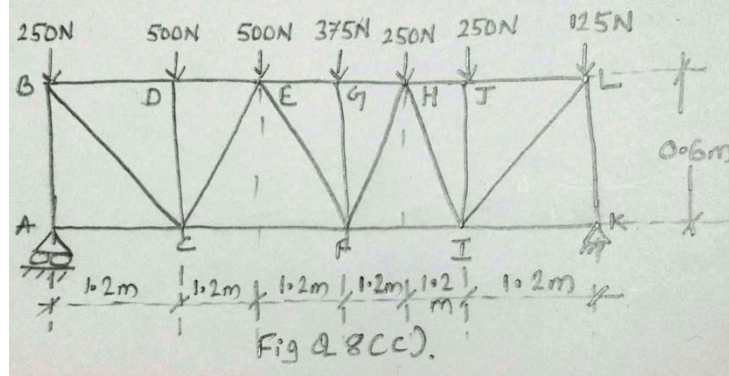 250N 500N 500N 375N 250N 250N 125N
B D E G H J L
0.6m
A C F I K
1.2m 1.2m 1.2m 1.2m 1.2 m 1.2m
Fig Q 8(c).